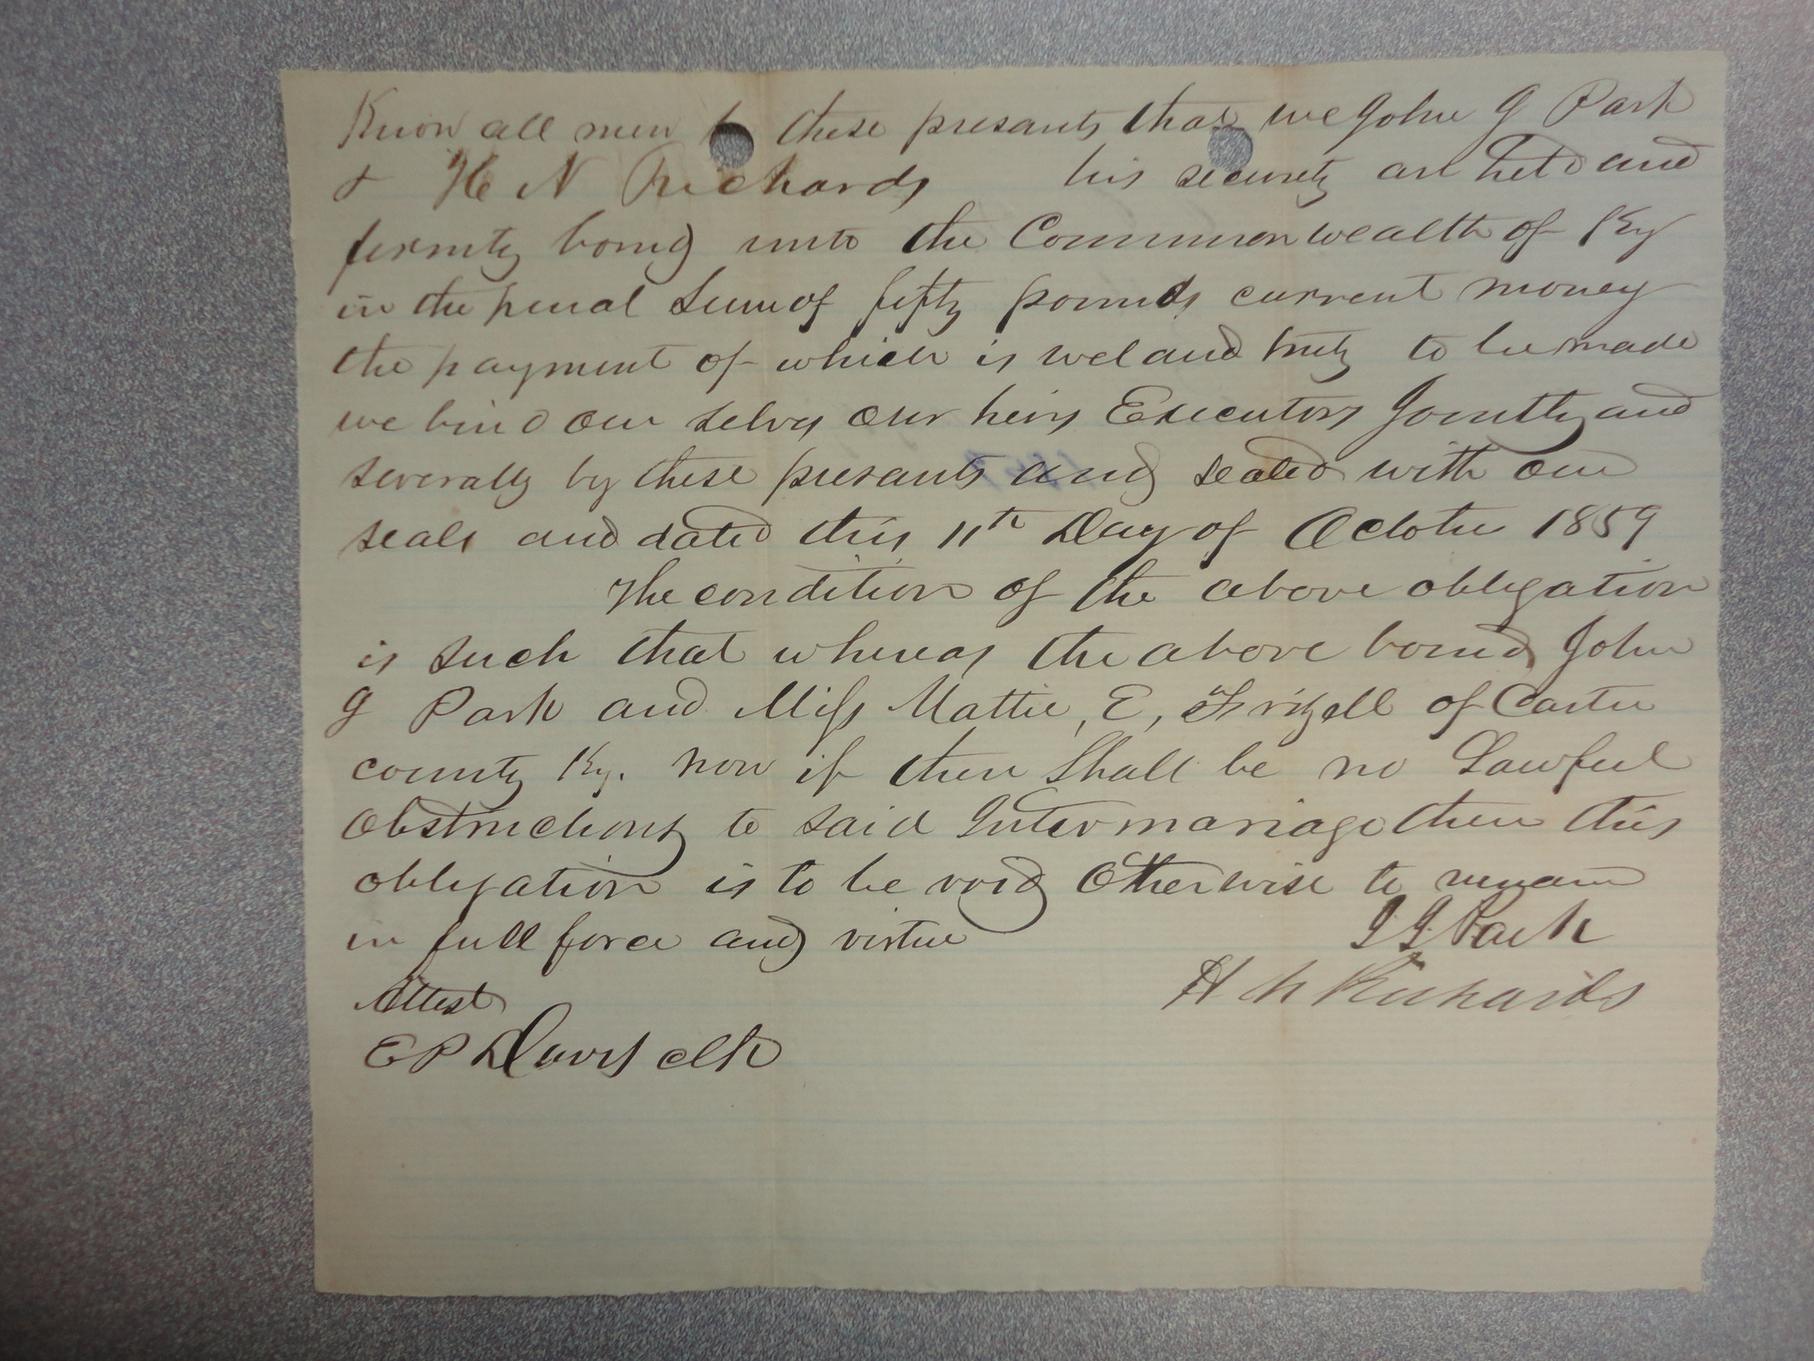 Know all men by these presants that we John G Park
& H N Richards his security are held and
firmly bound unto the Commonwealth of Ky
in the penal Sum of fifty pounds current money
the payment of which is wel and truly to be made
we bind our selvs our heirs Executors Jointly and
severally by these presants and sealed with our
seals and dated this 11th Day of October 1859
The condition of the above obligation
is such that whereas the above bound John
G Park and Miss Mattie, E, Frizzell of Carter
county Ky. now if there Shall be no Lawful
Obstructions to said Intermariage then this
obligation is to be void Otherwise to remain
in full force and virtue
J G Park
H N Richards
Attest
E P Davis clk